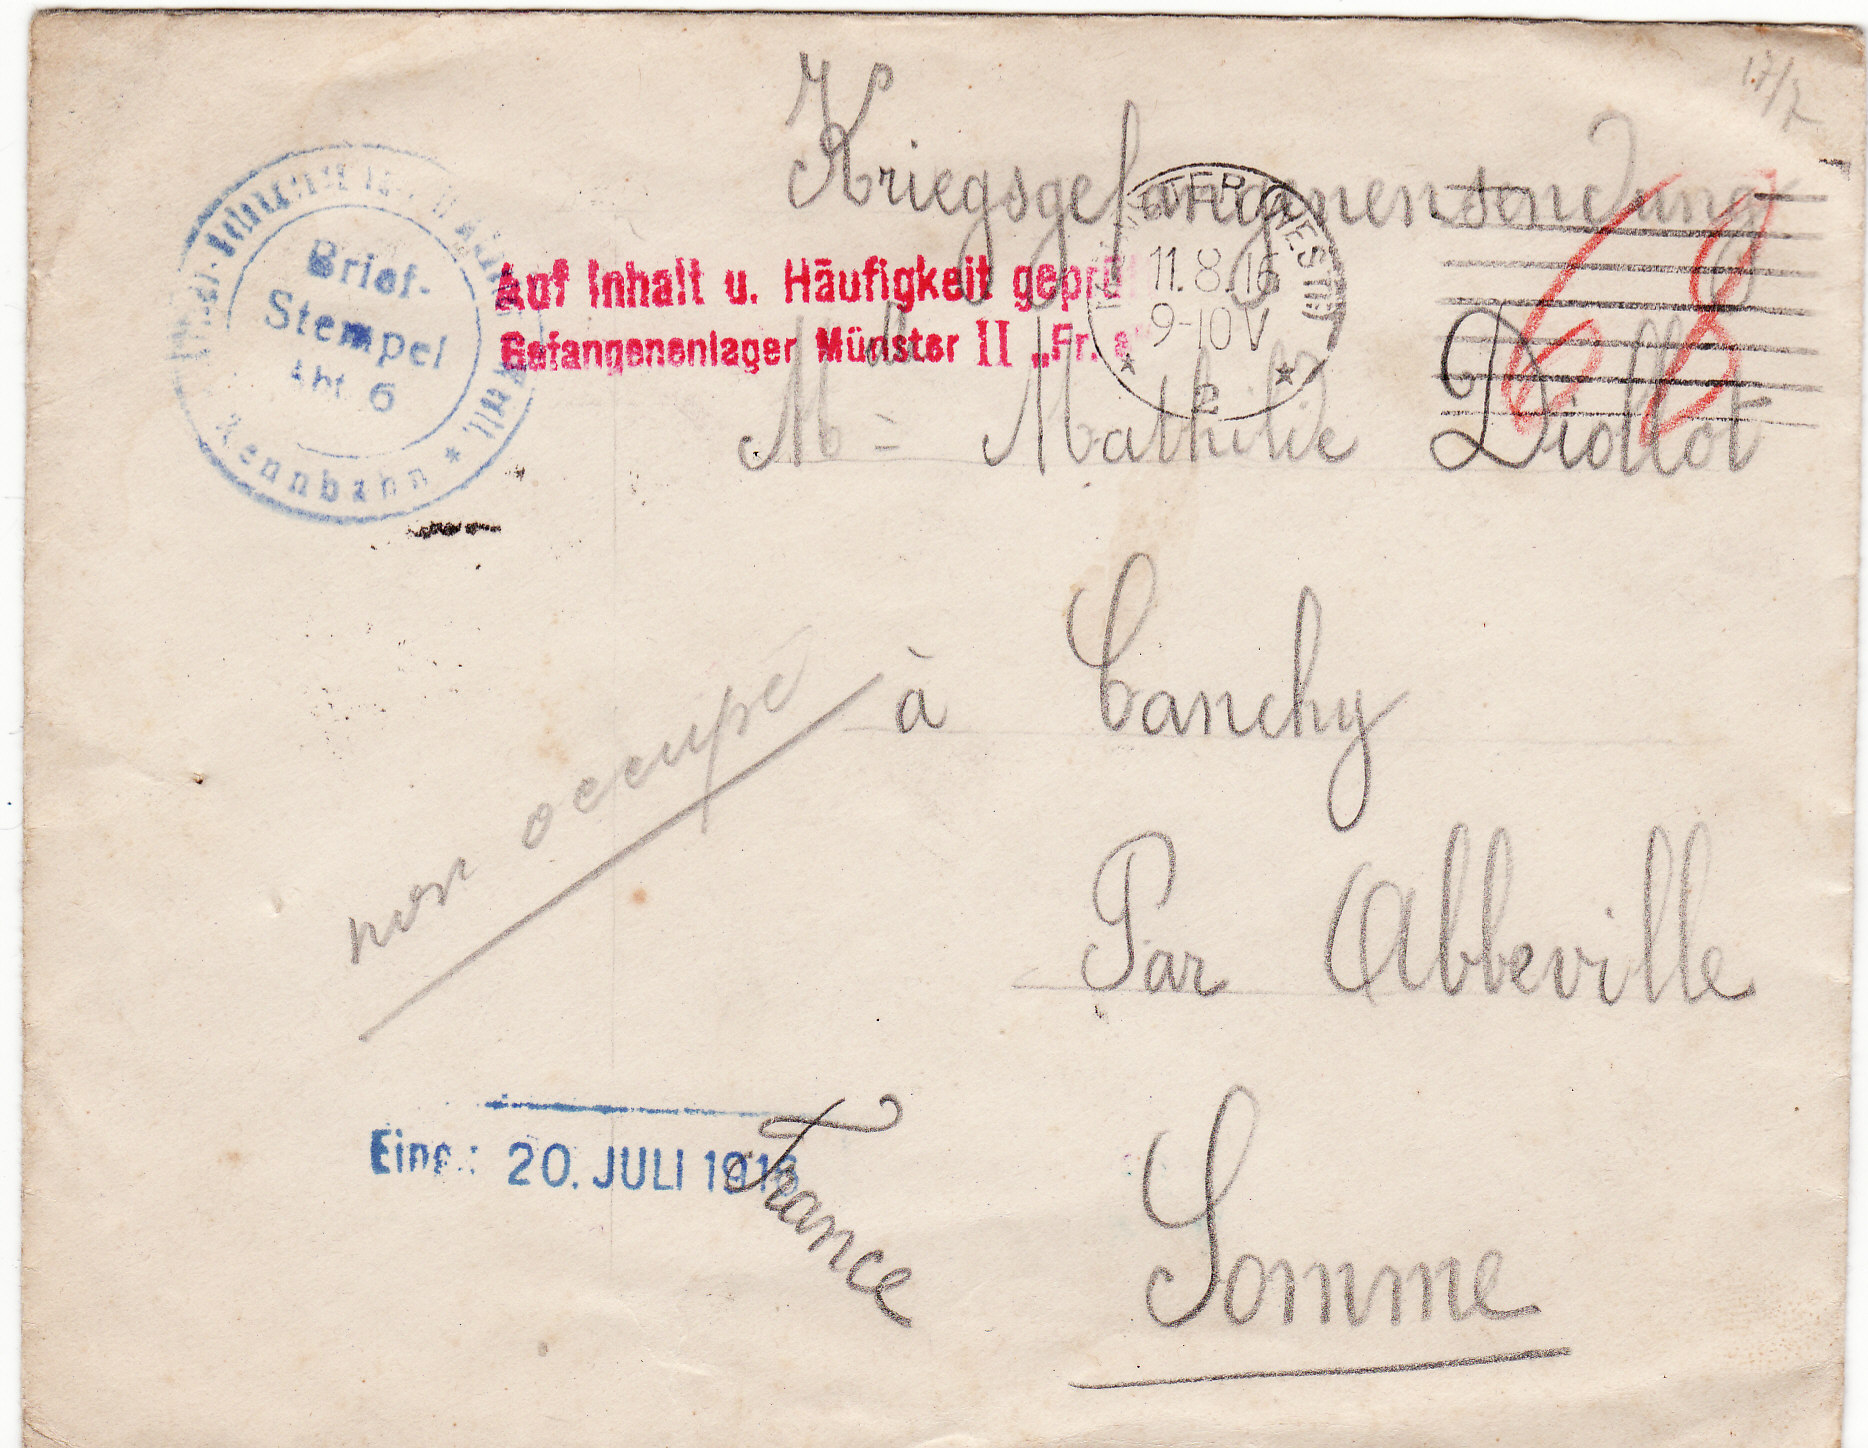 17/7
Kriegsgefangenensendung
Brief-
Stempel
Abt 6
Rennbahn
Auf Inhalt u. Häufigkeit geprü
Gefangenenlager Münster II „Fr. 
MÜNSTER (WESTF)
11.8.16
9-10 V
2
Mlle Mathilde Diollot
à Canchy
non occupé
Par Abbeville
Eing.: 20. JULI 1916
France
Somme